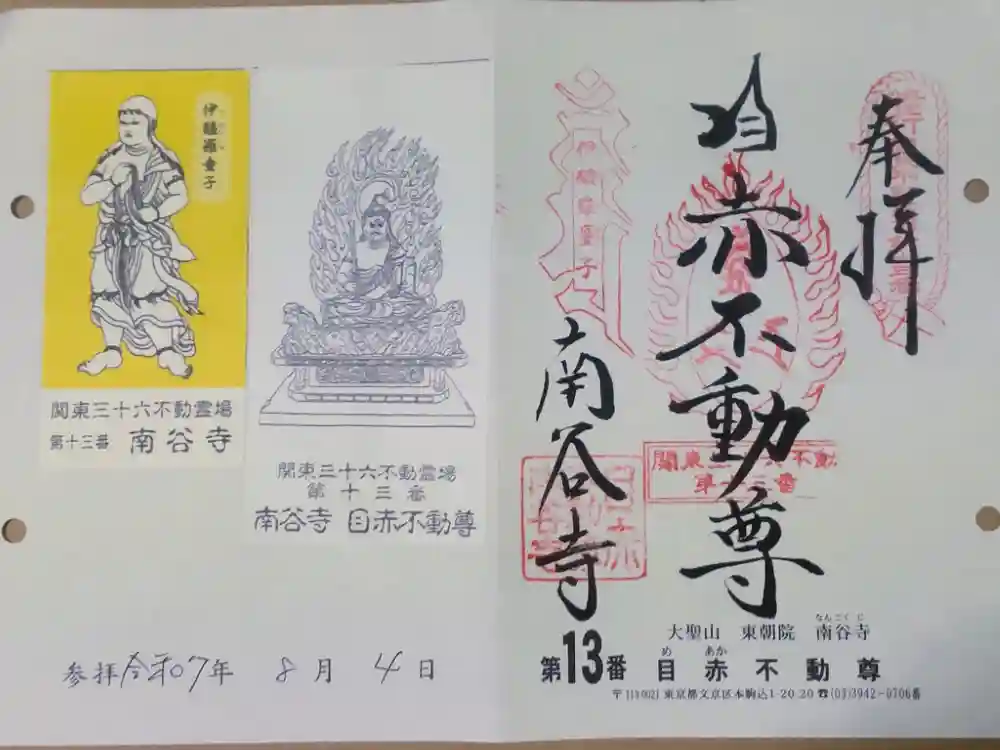 伊醯羅童子
関東三十六不動霊場
第十三番 南谷寺
関東三十六不動霊場
第十三番
南谷寺 目赤不動尊
参拝 令和07年 8月 4日
奉拝
目赤不動尊
南谷寺
伊醯羅童子
關東三十六不動
第十三番
大聖山 東朝院 南谷寺
なんこくじ
第13番 目赤不動尊
め あか
〒113-0021 東京都文京区本駒込1-20-20 ☎(03)3942-0706番